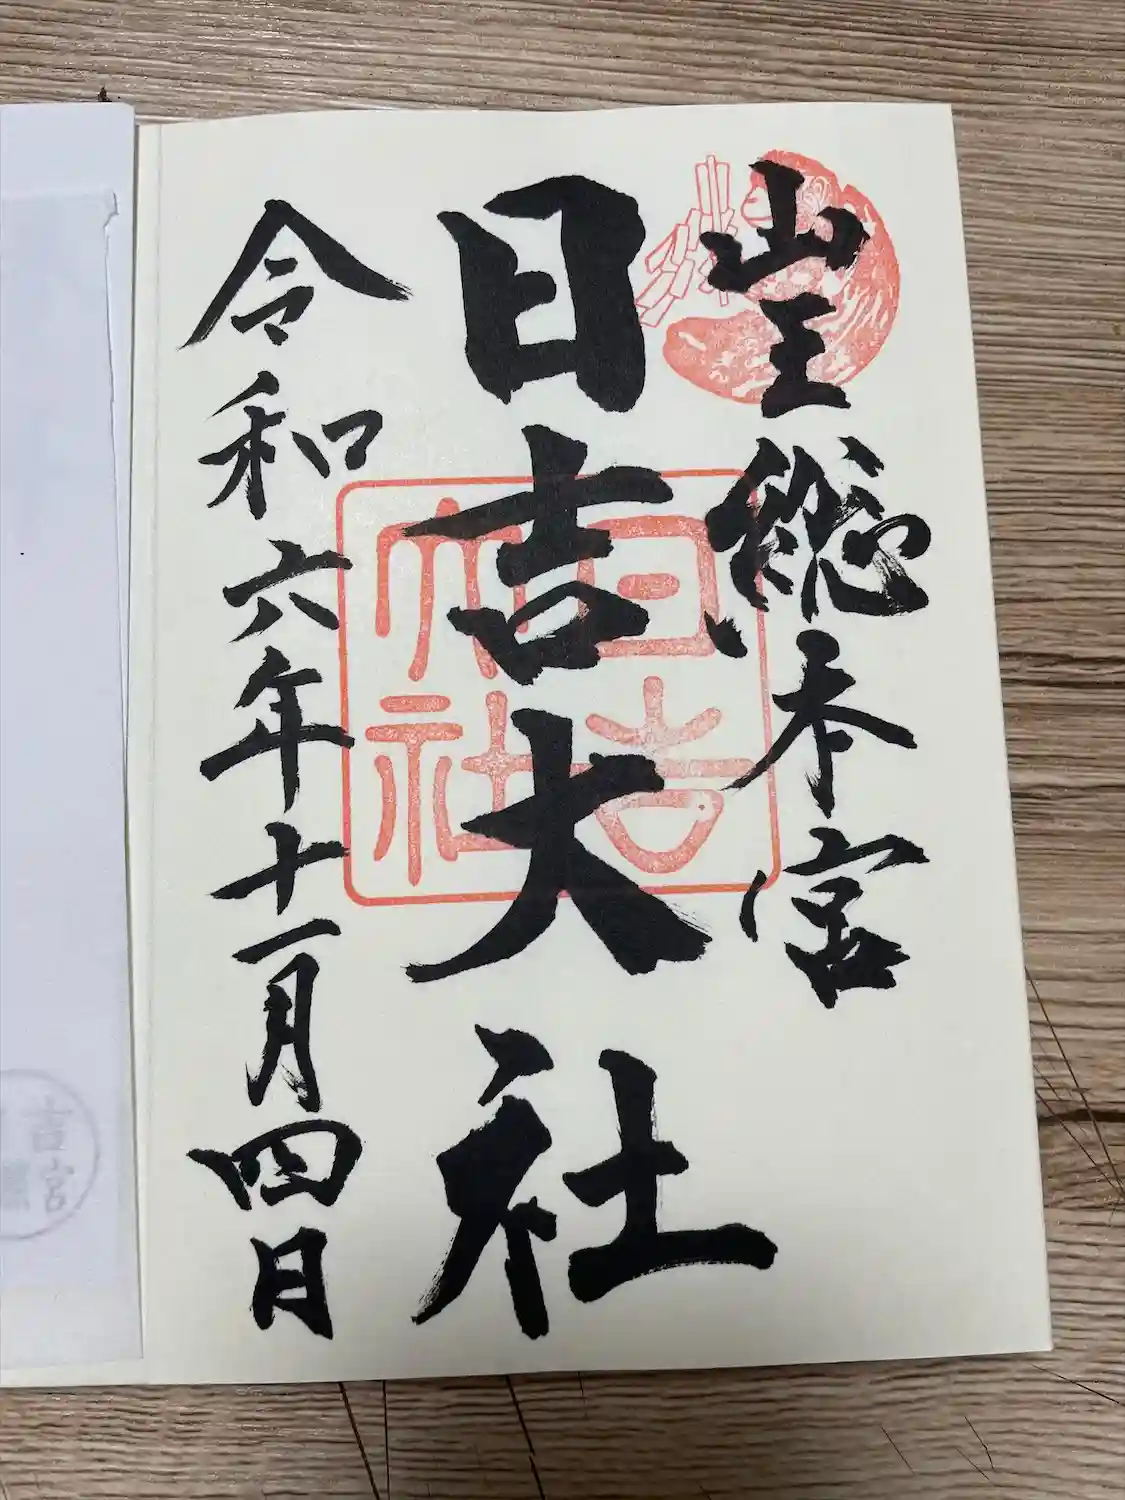 山王総本宮
日吉大社
日吉大社
令和六年十一月四日
吉宮